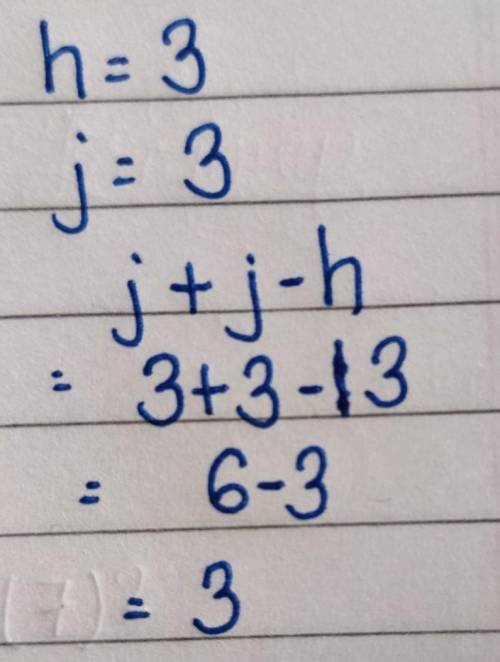 h = 3
j = 3
j + j - h
= 3 + 3 - 3
= 6 - 3
= 3